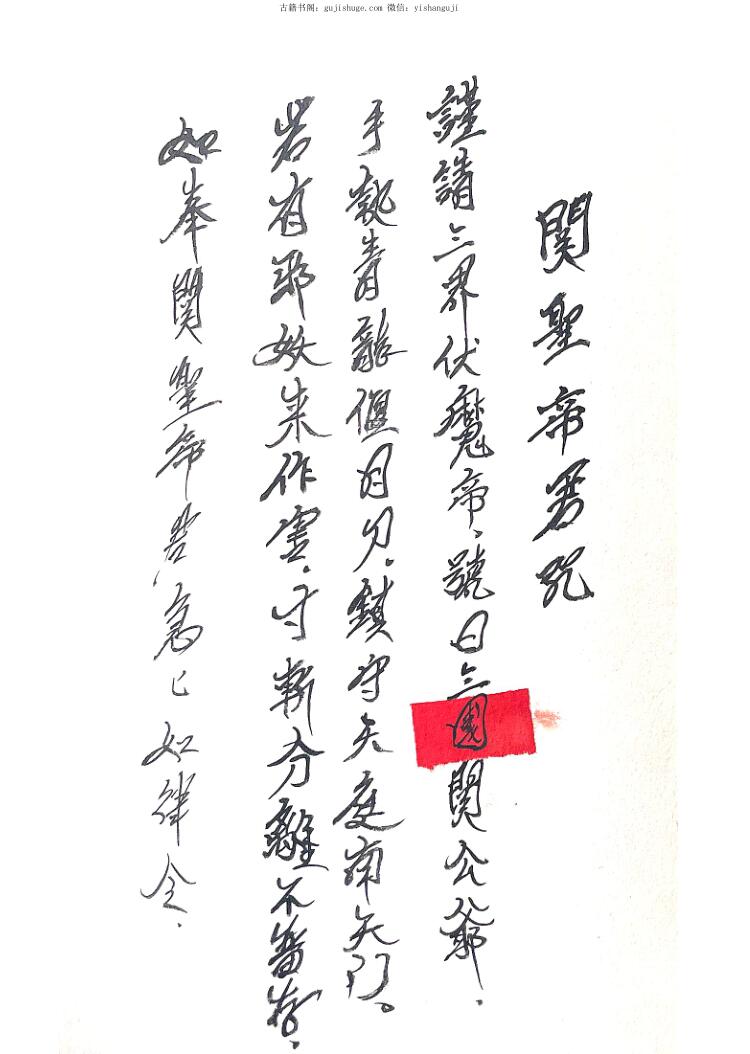 古籍书阁：gujishuge.com 微信：yishanguji
関聖帝君咒
謹請三界伏魔帝、號曰三國関公爺.
手執青龍偃月刀.鎮守天庭南天门。
若有邪妖来作害.寸斬分離不留存.
如奉関聖帝君急已如律令.